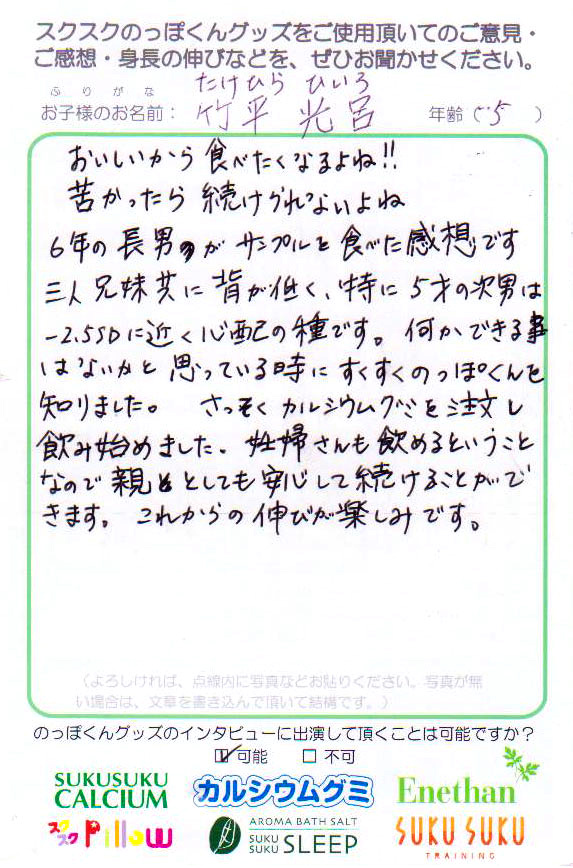 スクスクのっぽくんグッズをご使用頂いてのご意見・
ご感想・身長の伸びなどを、ぜひお聞かせください。
ふりがな たけひら ひいろ
お子様のお名前： 竹平 光呂 年齢（ 5 ）
おいしいから食べたくなるよね!!
苦かったら続けられないよね
6年の長男が サンプルを食べた感想です
三人兄妹共に背が低く、特に5才の次男は
-2.5SDに近く心配の種です。 何かできる事
はないかと思っている時にすくすくのっぽくんを
知りました。 さっそくカルシウムグミを注文し
飲み始めました。妊婦さんも飲めるということ
なので親としても安心して続けることがで
きます。 これからの伸びが楽しみです。
（よろしければ、点線内に写真などお貼りください。写真が無
い場合は、文章を書き込んで頂いて結構です。）
のっぽくんグッズのインタビューに出演して頂くことは可能ですか？
☑ 可能 □ 不可
SUKUSUKU
CALCIUM
カルシウムグミ
Enethan
スクスク Pillow
AROMA BATH SALT
SUKU
SUKU SLEEP
SUKU SUKU
TRAINING